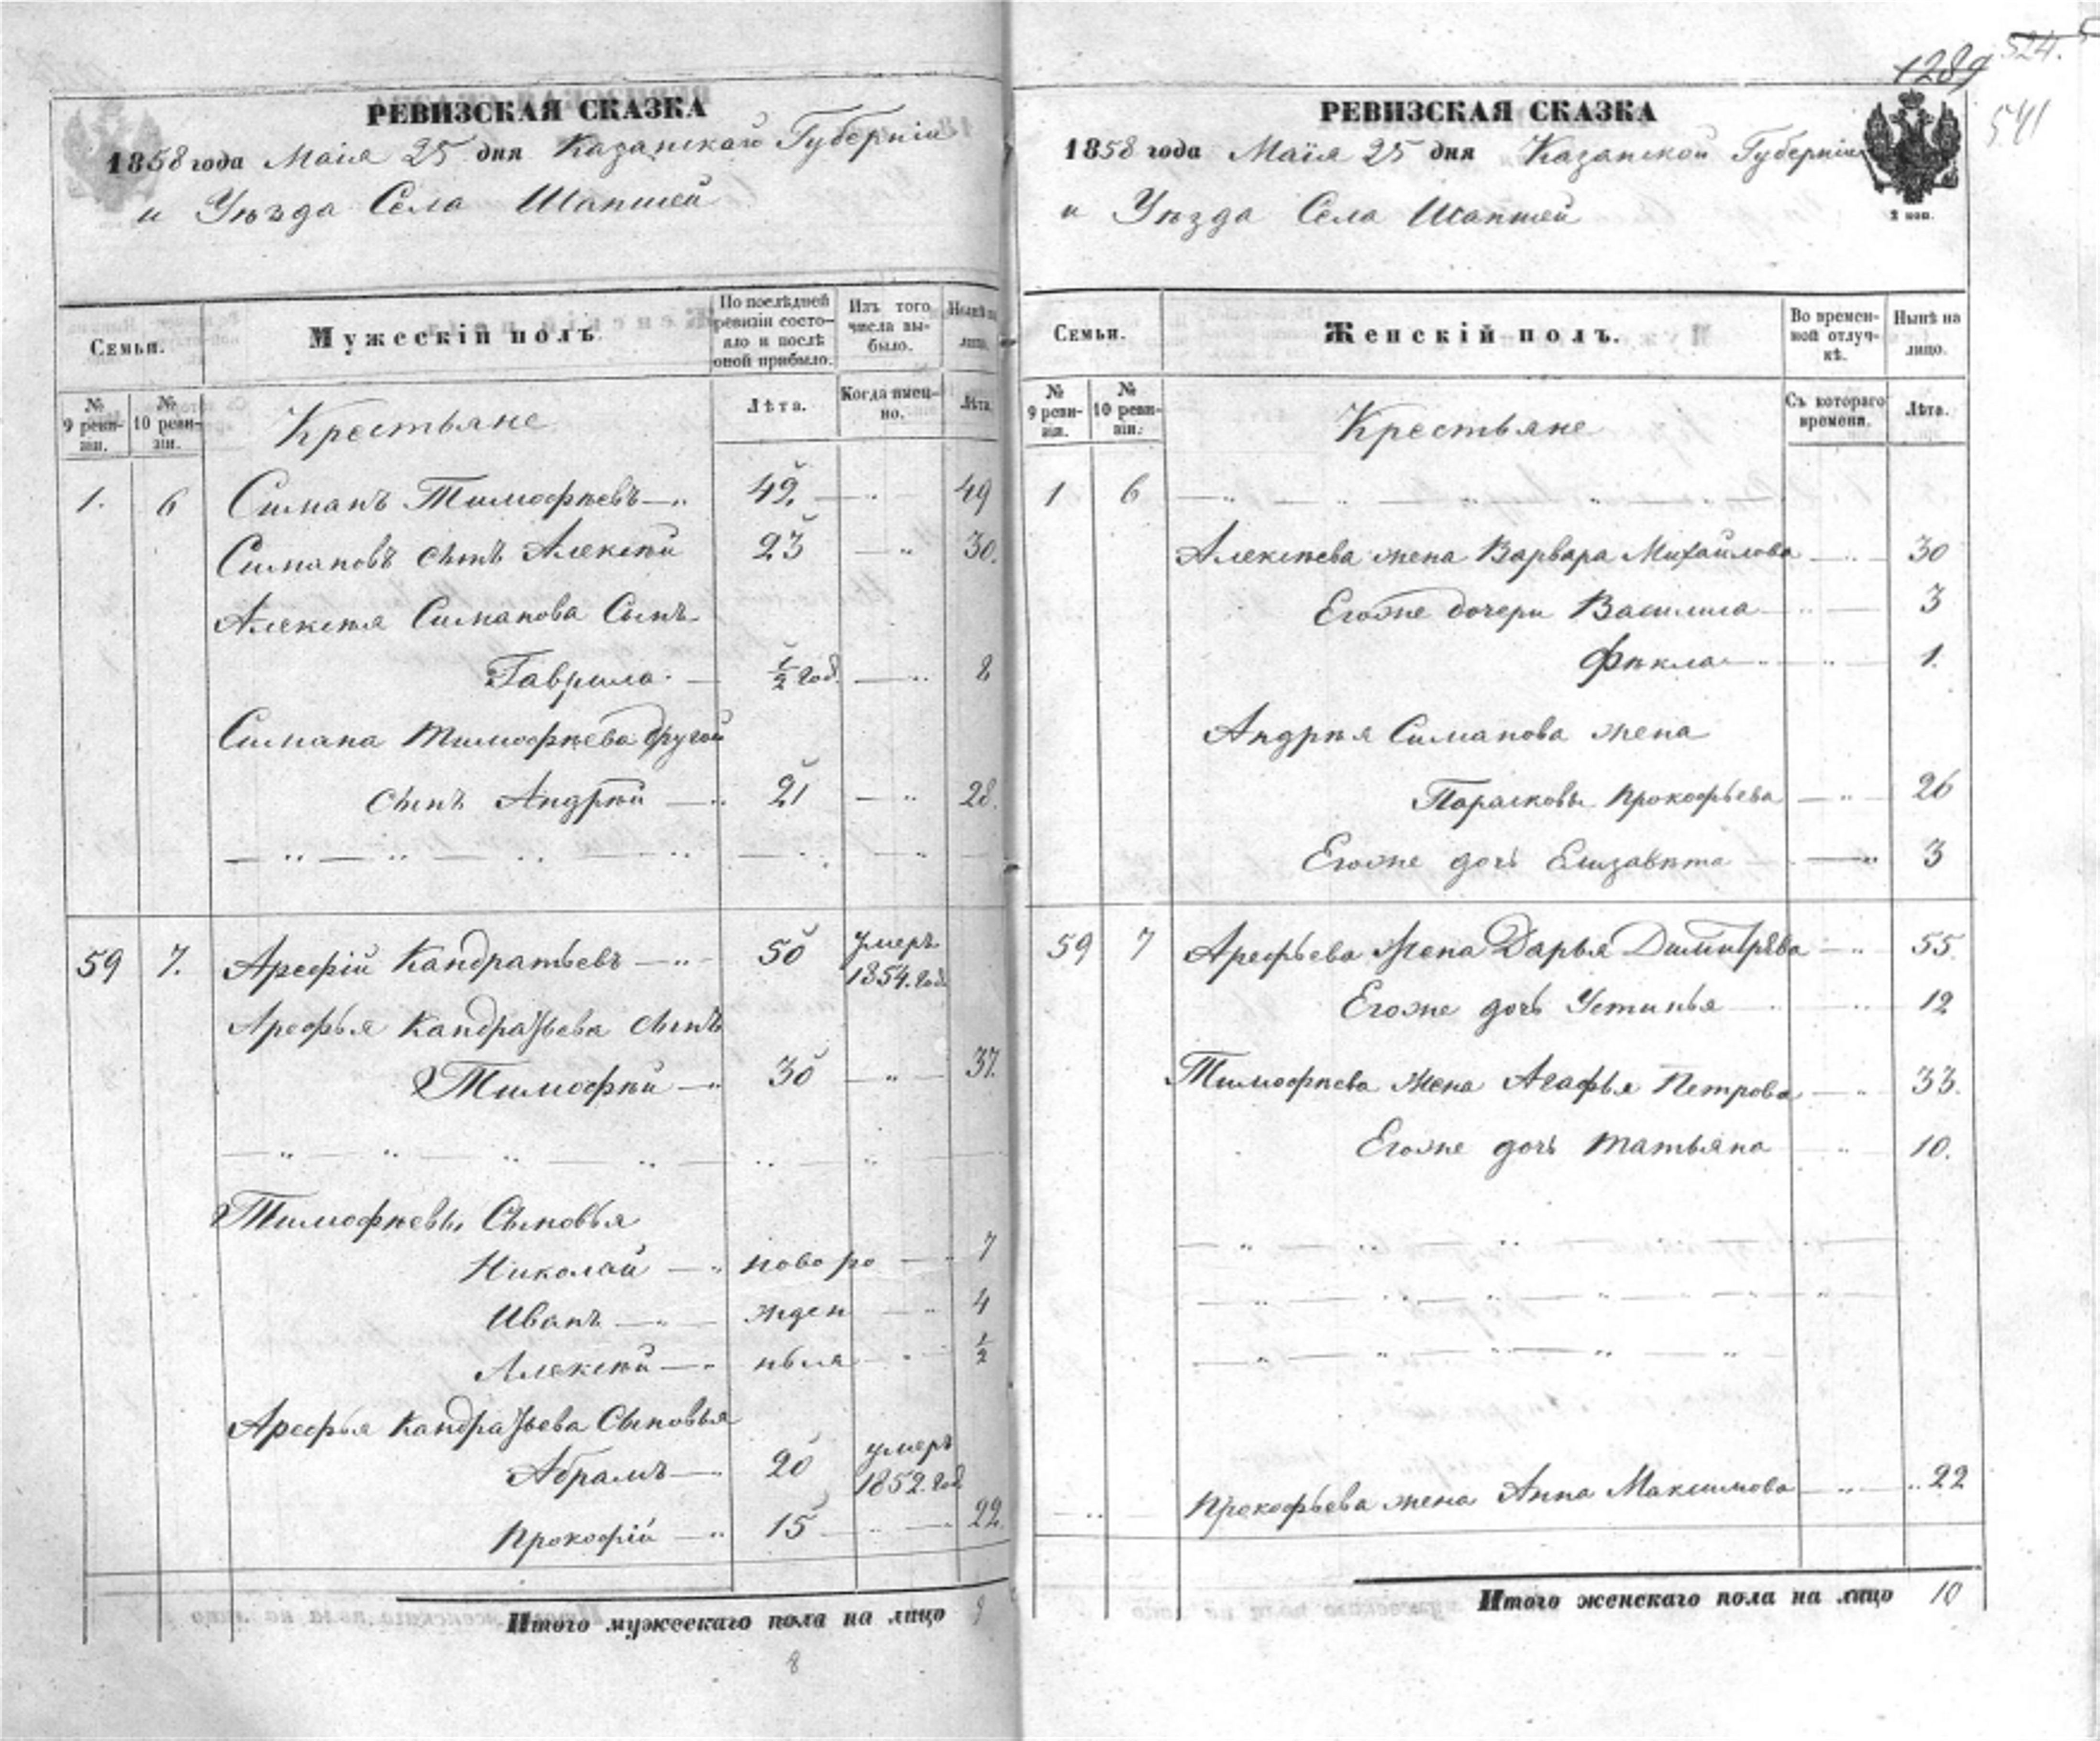 РЕВИЗСКАЯ СКАЗКА
1858 года Маія 25 дня Казанской Губерніи
и Уѣзда Села Шапшей
Семьи.
Мужескій полъ.
По послѣдней ревизіи состояло и послѣ оной прибыло.
Изъ того числа выбыло.
Нынѣ на лицо.
№ 9 ревизіи.
№ 10 ревизіи.
Крестьяне
Лѣта.
Когда именно.
Лѣта.
1. 6 Симанъ Тимофѣевъ — 42 — 49
Симановъ сынъ Алексѣй 23 — 30.
Алексѣя Симанова Сынъ
Гаврила — ½ год. — 8
Симана Тимофѣева другой
сынъ Андрѣй — 21 — 28.
59 7. Арефій Кандратьевъ — 50 умеръ 1854. год.
Арефья Кандратьева сынъ
Тимофѣй — 30 — 37.
Тимофѣевы Сыновья
Николай — новоро — 7
Иванъ — жден — 4
Алексѣй — ныя — ½
Арефья Кандратьева Сыновья
Абрамъ — 20 умеръ 1852. год
Прокофій — 15 — 22.
Итого мужескаго пола на лицо 9
8
1289 524.
541
РЕВИЗСКАЯ СКАЗКА
1858 года Маія 25 дня Казанской Губерніи
и Уѣзда Села Шапшей
2 коп.
Семьи.
Женскій полъ.
Во временной отлучкѣ.
Нынѣ на лицо.
№ 9 ревизіи.
№ 10 ревизіи.
Крестьяне
Съ котораго времени.
Лѣта.
1 6
Алексѣева жена Варвара Михайлова — 30
Егоже дочери Василиса — 3
Фѣкла — 1.
Андрѣя Симанова жена
Парасковья Прокофьева — 26
Егоже дочь Елизавѣта — 3
59 7 Арефьева Жена Дарья Димитрѣва — 55
Егоже дочь Устинья — 12
Тимофѣева Жена Агафья Петрова — 33.
Егоже дочь Татьяна — 10.
Прокофьева жена Анна Максимова — 22
Итого женскаго пола на лицо 10